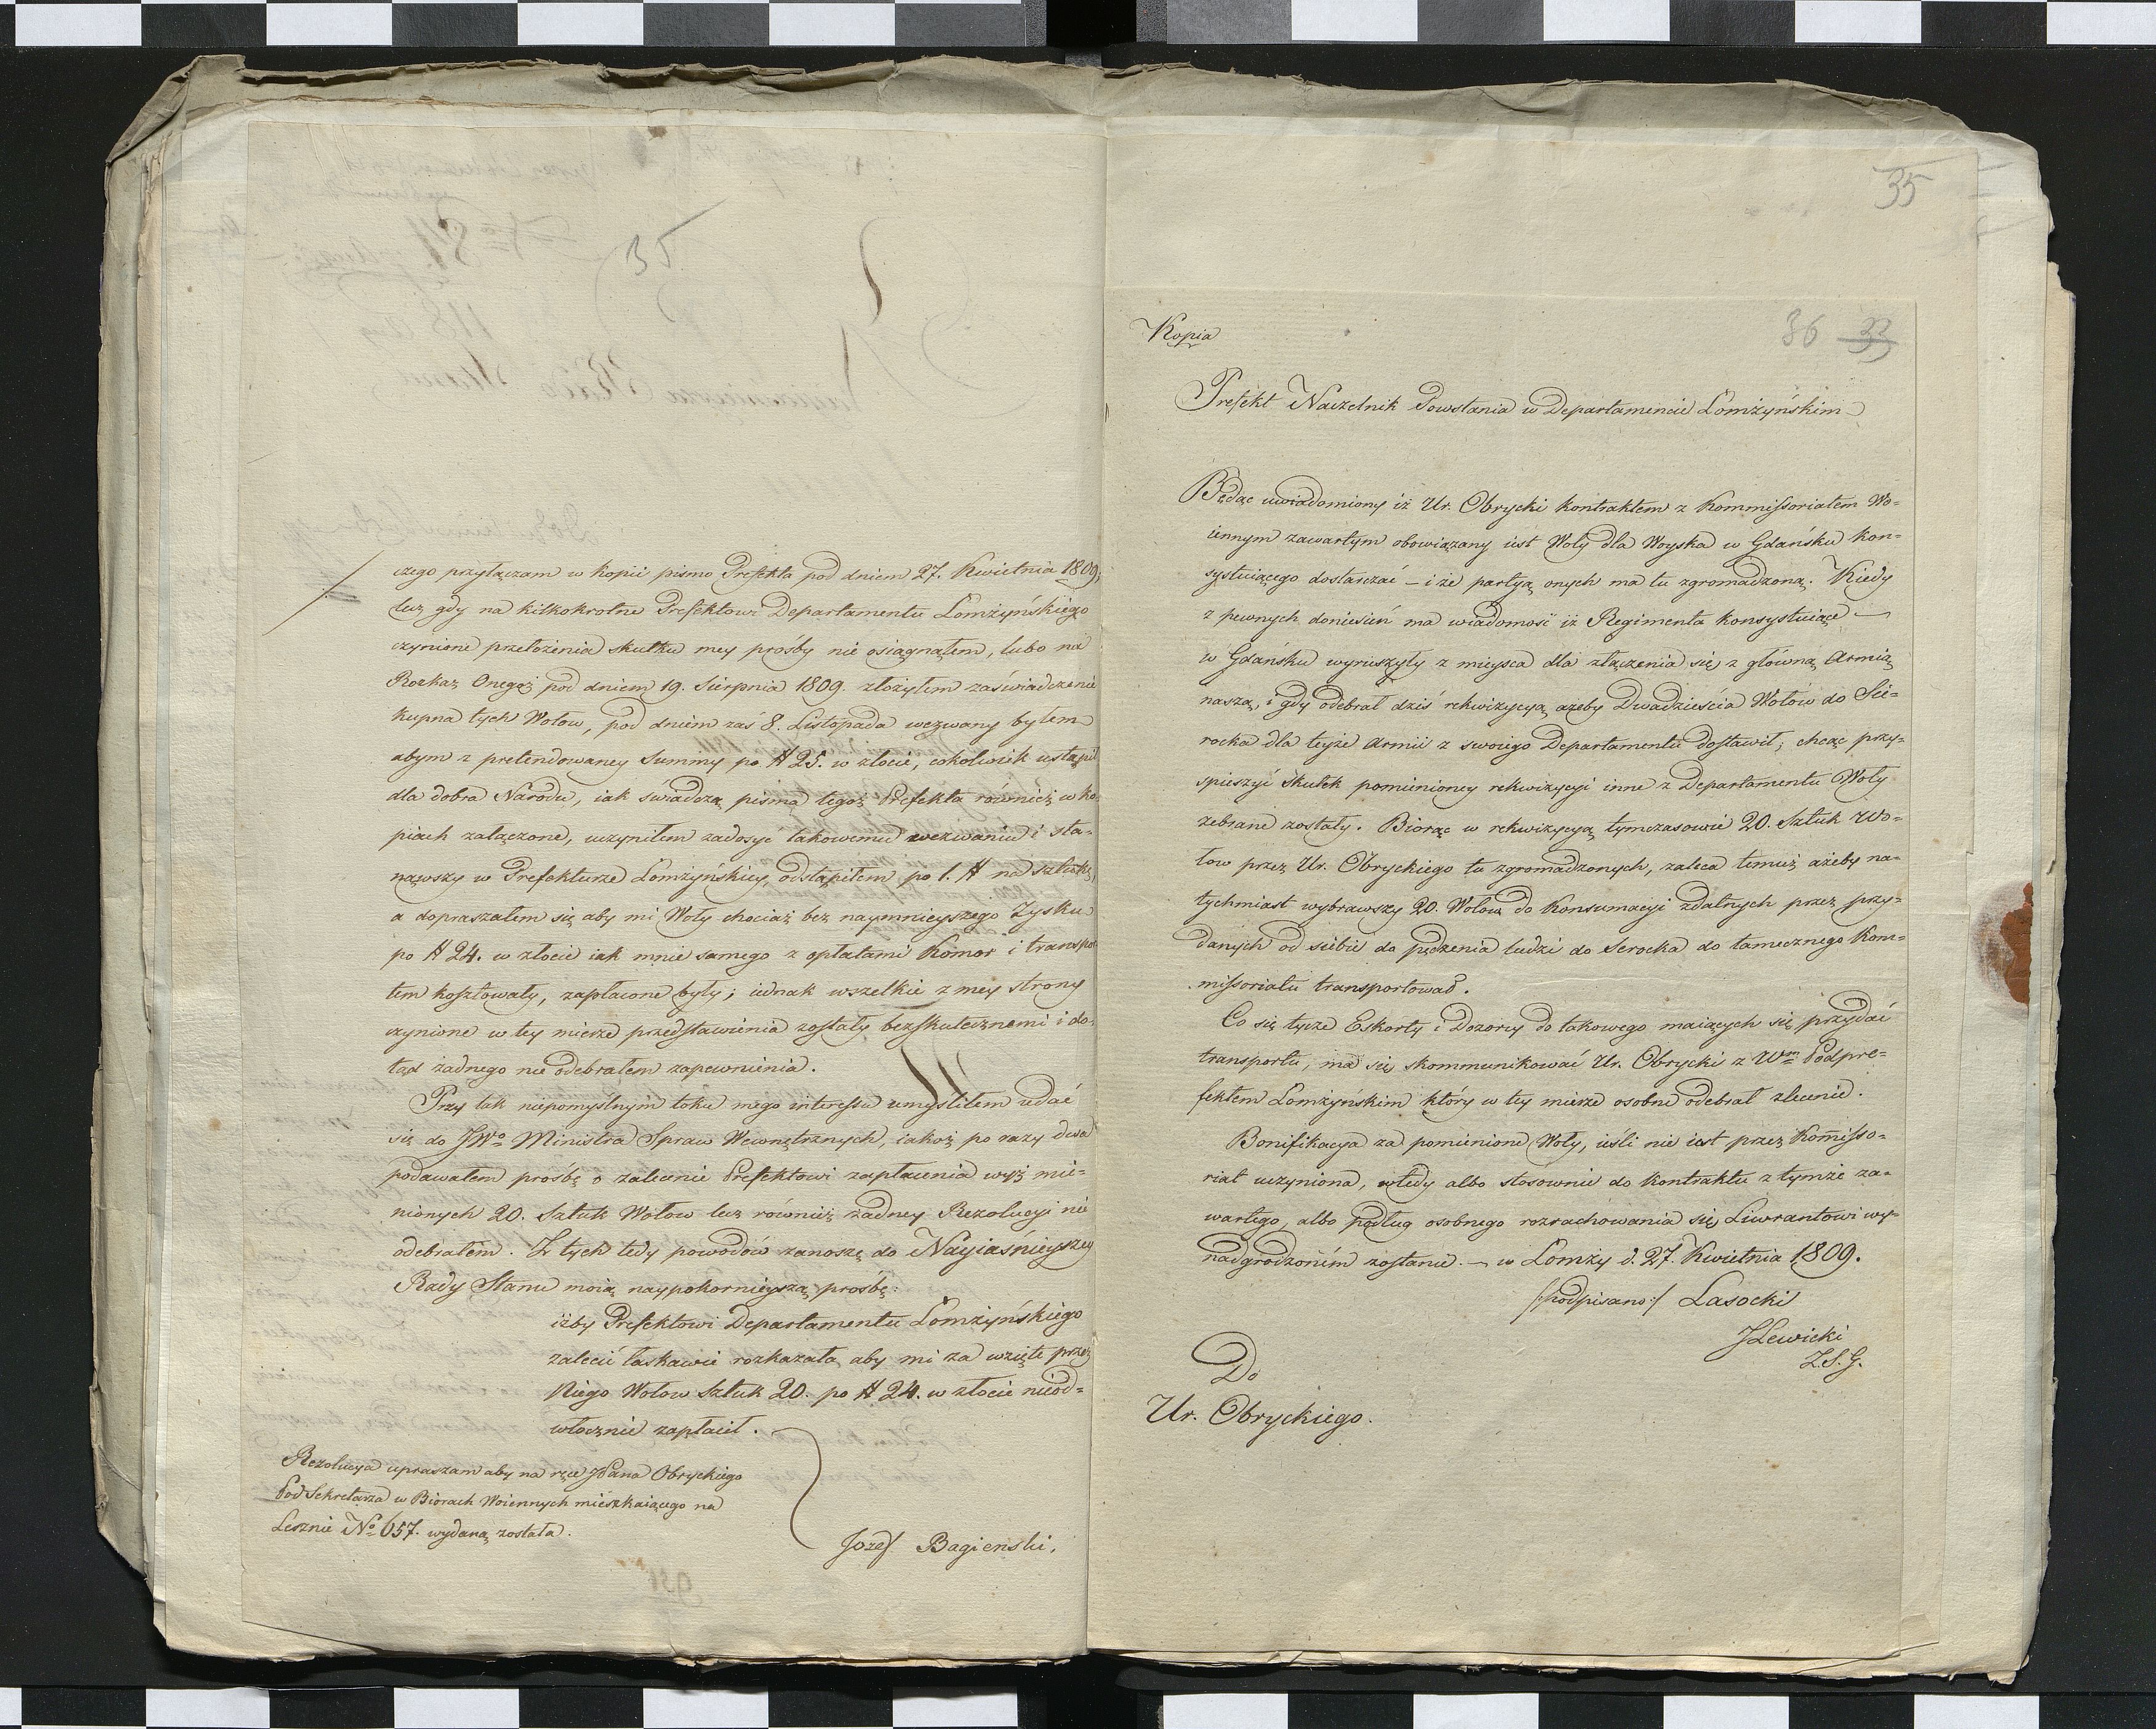 czego przyłączam w kopii pismo Prefekta pod dniem 27. Kwietnia 1809,
lecz gdy na kilkokrotne Prefektowi Departamentu Łomżyńskiego
czynione przełożenia skutku mey prośby nie osiągnąłem, lubo na
Rozkaz Onegoż pod dniem 19. Sierpnia 1809. złożyłem zaświadczenie
kupna tych Wołow, pod dniem zaś 8. Listopada wezwany byłem
abym z pretendowaney Summy po # 25. w złocie, cokolwiek ustąpił
dla dobra Narodu, iak świadczą pisma tegoż Prefekta również w ko-
piach załączone, uczyniłem zadosyć takowemu wezwaniu i sta-
nąwszy w Prefekturze Łomżyńskiey, odstąpiłem po 1. # na sztukę,
a dopraszałem się aby mi Woły chociaż bez naymnieyszego Zysku
po # 24. w złocie iak mnie samego z opłatami Komor i transpor-
tem kosztowały, zapłacone były; iednak wszelkie z mey strony
czynione w tey mierze przedstawienia zostały bezskutecznemi i do-
tąd żadnego nie odebrałem zapewnienia.
Przy tak niepomyślnym toku mego interessu umyśliłem udać
się do JWo Ministra Spraw Wewnętrznych, iakoż po razy dwa
podawałem prośbę o zalecenie Prefektowi zapłacenia wyż mie-
nionych 20. Sztuk Wołow lecz również żadney Rezolucyi nie
odebrałem. Z tych tedy powodów zanoszę do Nayiaśnieyszey
Rady Stanu moią naypokornieyszą prośbę:
iżby Prefektowi Departamentu Łomżyńskiego
zalecić łaskawie rozkazała, aby mi za wzięte przez
Niego Wołow Sztuk 20. po # 24. w złocie nieod-
włocznie zapłacił.
Rezolucya upraszam aby na ręce JPana Obryckiego
PodSekretarza w Biórach Woiennych mieszkaiącego na
Lesznie No 657. wydaną została.
Jozef Bagienski.
35
36 33
Kopia
Prefekt Naczelnik Powstania w Departamencie Łomżyńskim
Będąc uwiadomiony iż Ur. Obrycki kontraktem z Kommissoriatem Wo-
iennym zawartym obowiązany iest Woły dla Woyska w Gdańsku kon-
systuiącego dostarczać – i że partyą onych ma tu zgromadzoną. Kiedy
z pewnych doniesień ma wiadomość iż Regimenta konsystuiące –
w Gdańsku wyruszyły z mieysca dla złączenia się z główną Armią
naszą, i gdy odebrał dziś rekwizycyą ażeby Dwadzieścia Wołów do Se-
rocka dla teyże Armii z swoiego Departamentu dostawił, chcąc przy-
spieszyć skutek pomienioney rekwizycyi inne z Departamentu Woły
zebrane zostały. Biorąc w rekwizycyą tymczasowie 20. Sztuk Wo-
łow przez Ur. Obryckiego tu zgromadzonych, zaleca temuż ażeby na-
tychmiast wybrawszy 20. Wołow do Konsumacyi zdatnych przez przy-
danych od siebie do pędzenia ludzi do Serocka do tamecznego Kom-
missoriatu transportował.
Co się tycze Eskorty i Dozorcy do takowego maiących się przydać
transportu, ma się skommunikować Ur. Obrycki z Wm Podpre-
fektem Łomżyńskim który w tey mierze osobne odebrał zlecenie.
Bonifikacya za pomienione Woły, ieśli nie iest przez Komisso-
riat uczyniona, wtedy albo stosownie do kontraktu z tymże za-
wartego, albo podług osobnego rozrachowania się Liwrantowi wy-
nadgrodzonem zostanie. – w Łomży d. 27. Kwietnia 1809.
/:podpisano:/ Lasocki
JLewicki
Z.S.G.
Do
Ur. Obryckiego.